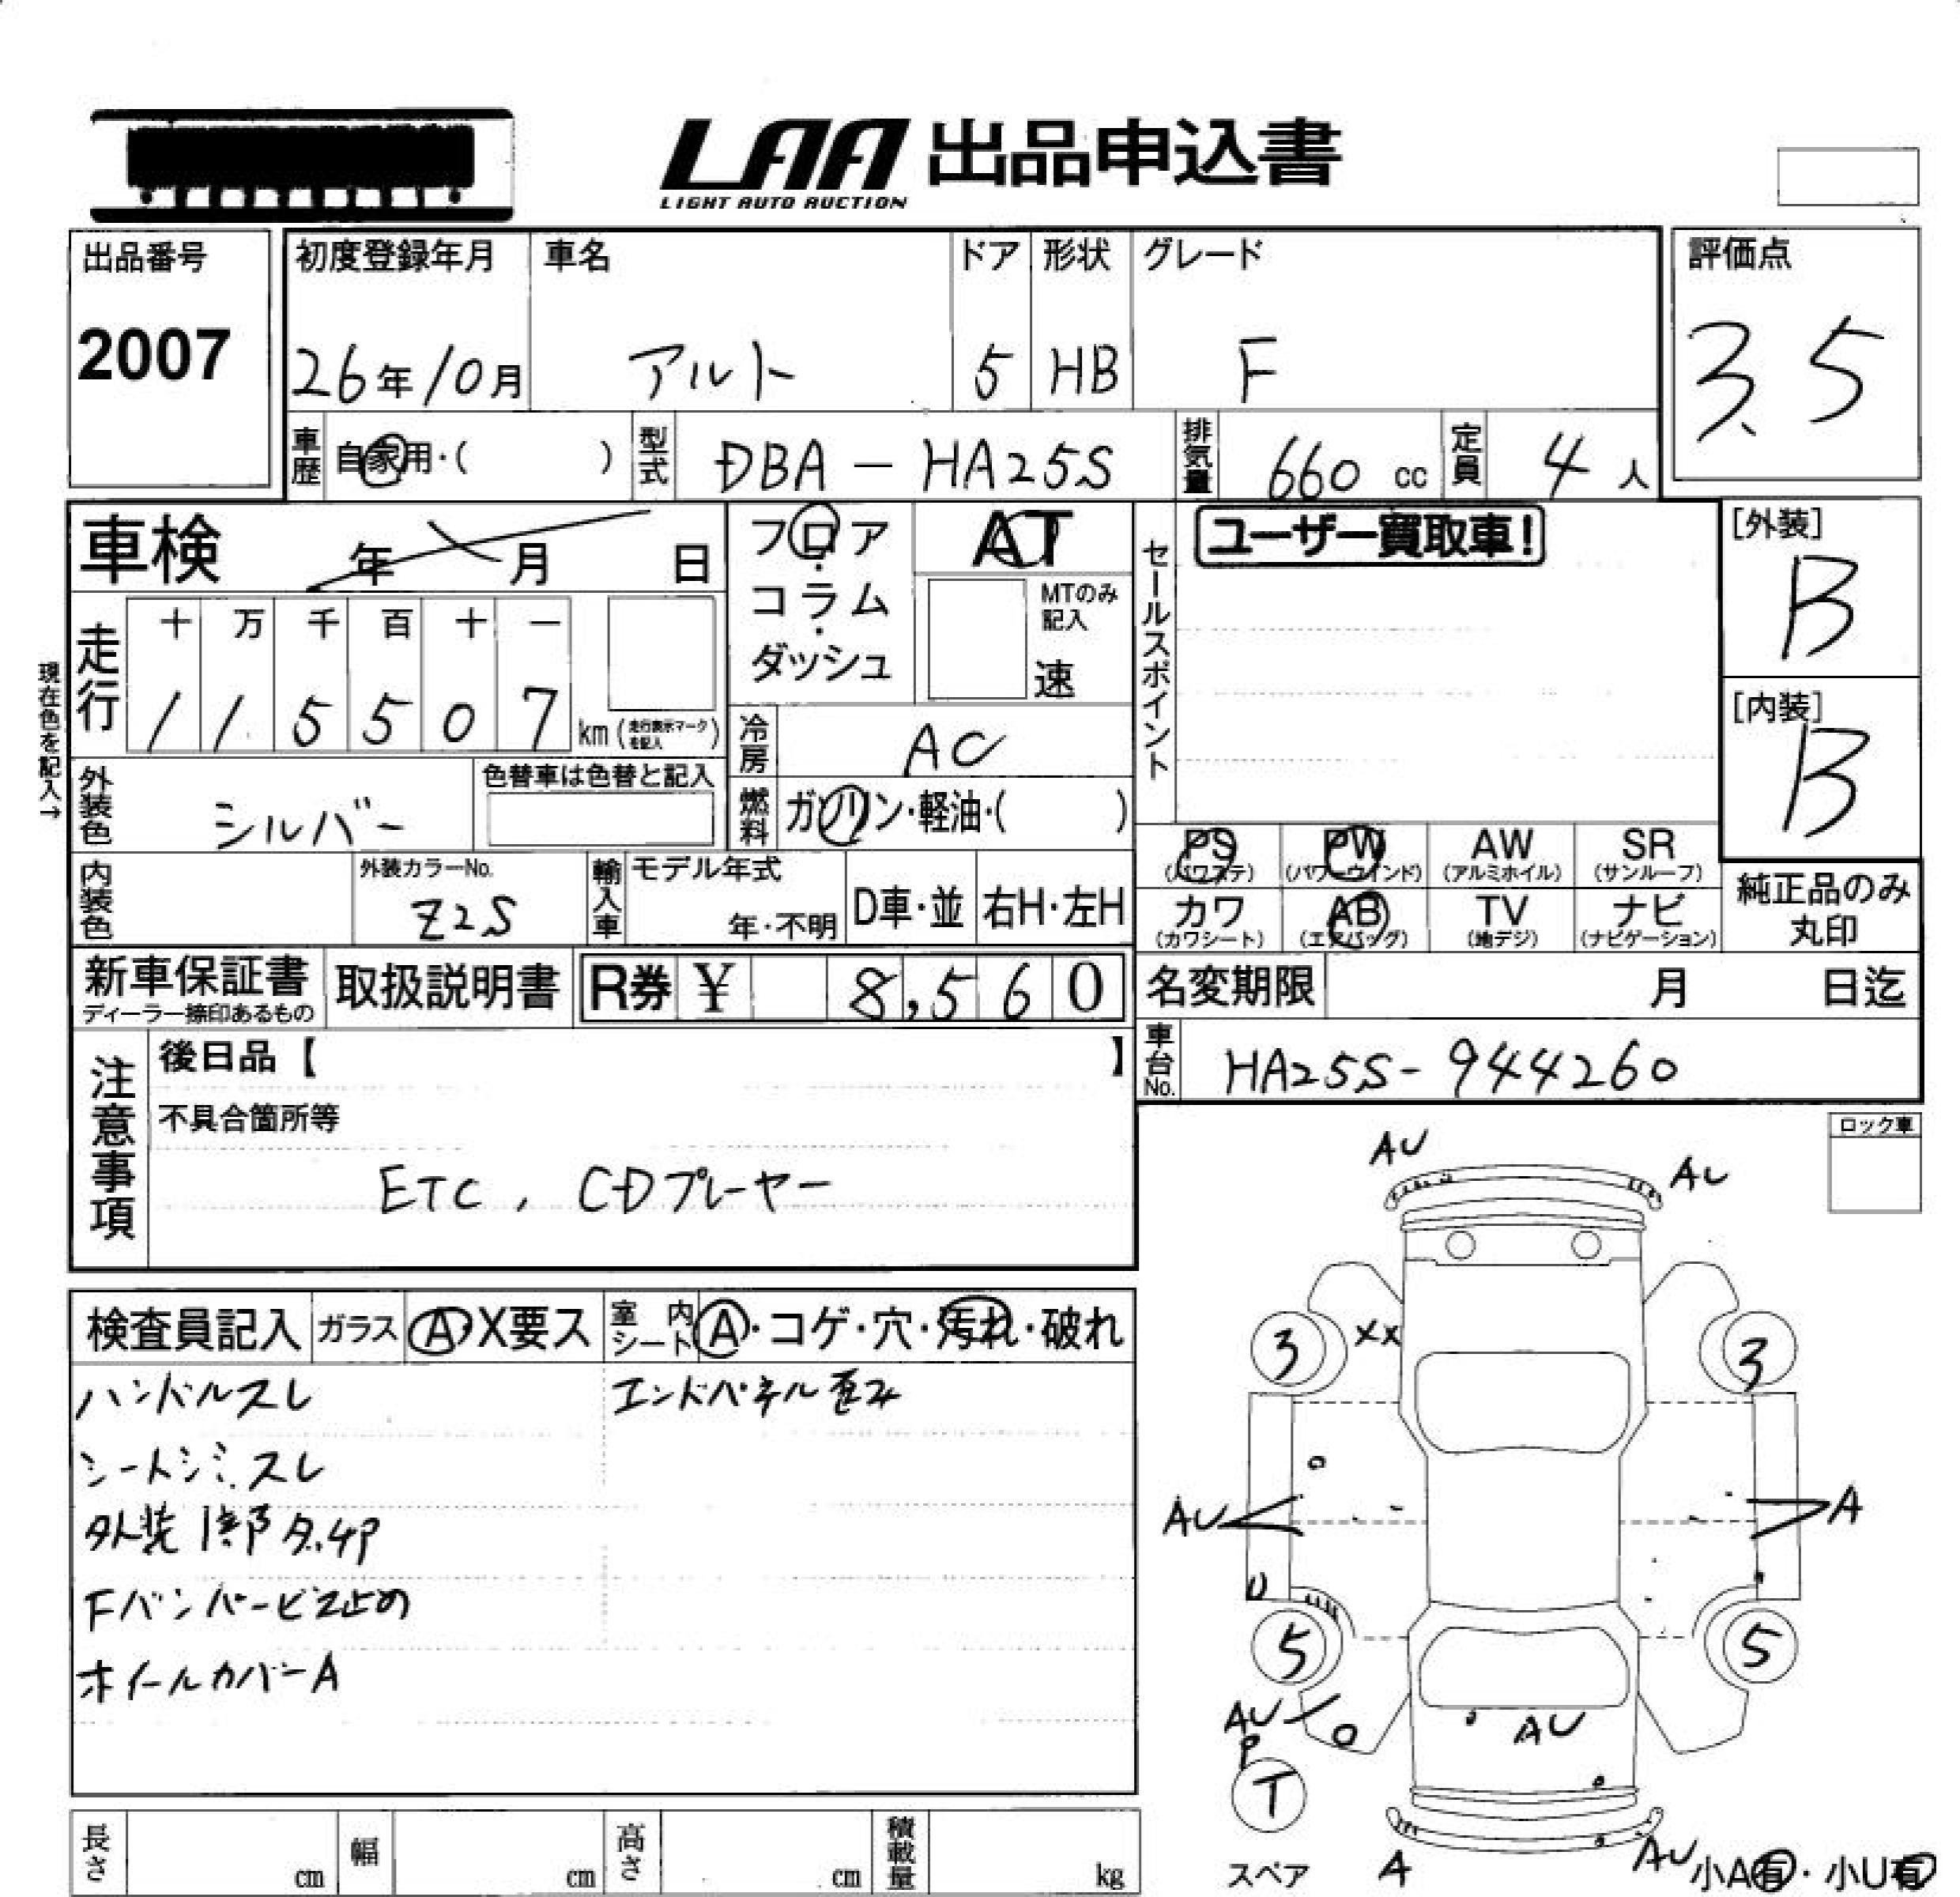 LAA 出品申込書
LIGHT AUTO AUCTION
出品番号
2007
初度登録年月
26年10月
車名
アルト
ドア
5
形状
HB
グレード
F
評価点
3.5
車歴
自家用・( )
型式
DBA-HA25S
排気量
660 cc
定員
4 人
車検 年 月 日
フロア・コラム・ダッシュ
AT
MTのみ記入
速
セールスポイント
ユーザー買取車!
[外装]
B
[内装]
B
現在色を記入→
走行
十 万 千 百 十 一
1 1 5 5 0 7 km (走行表示マークを記入)
冷房
AC
外装色
シルバー
色替車は色替と記入
燃料
ガソリン・軽油・( )
PS (パワステ)
PW (パワーウインド)
AW (アルミホイル)
SR (サンルーフ)
カワ (カワシート)
AB (エアバッグ)
TV (地デジ)
ナビ (ナビゲーション)
純正品のみ丸印
内装色
外装カラーNo.
Z2S
輸入車
モデル年式
年・不明
D車・並
右H・左H
新車保証書
ディーラー捺印あるもの
取扱説明書
R券 ¥ 8,560
名変期限 月 日迄
車台No.
HA25S-944260
注意事項
後日品【 】
不具合箇所等
ETC, CDプレーヤー
ロック車
検査員記入
ガラス
A・X要ス
室内シート
A・コゲ・穴・汚れ・破れ
ハンドルスレ
エンドパネル歪み
シートシミ.スレ
外装1部タ.4P
Fバンパービス止め
ホイールカバーA
AU
AU
3
XX
3
AU
A
U
5
5
AU
P
AU
T
スペア
A
AU
小A有・小U有
長さ cm
幅 cm
高さ cm
積載量 kg